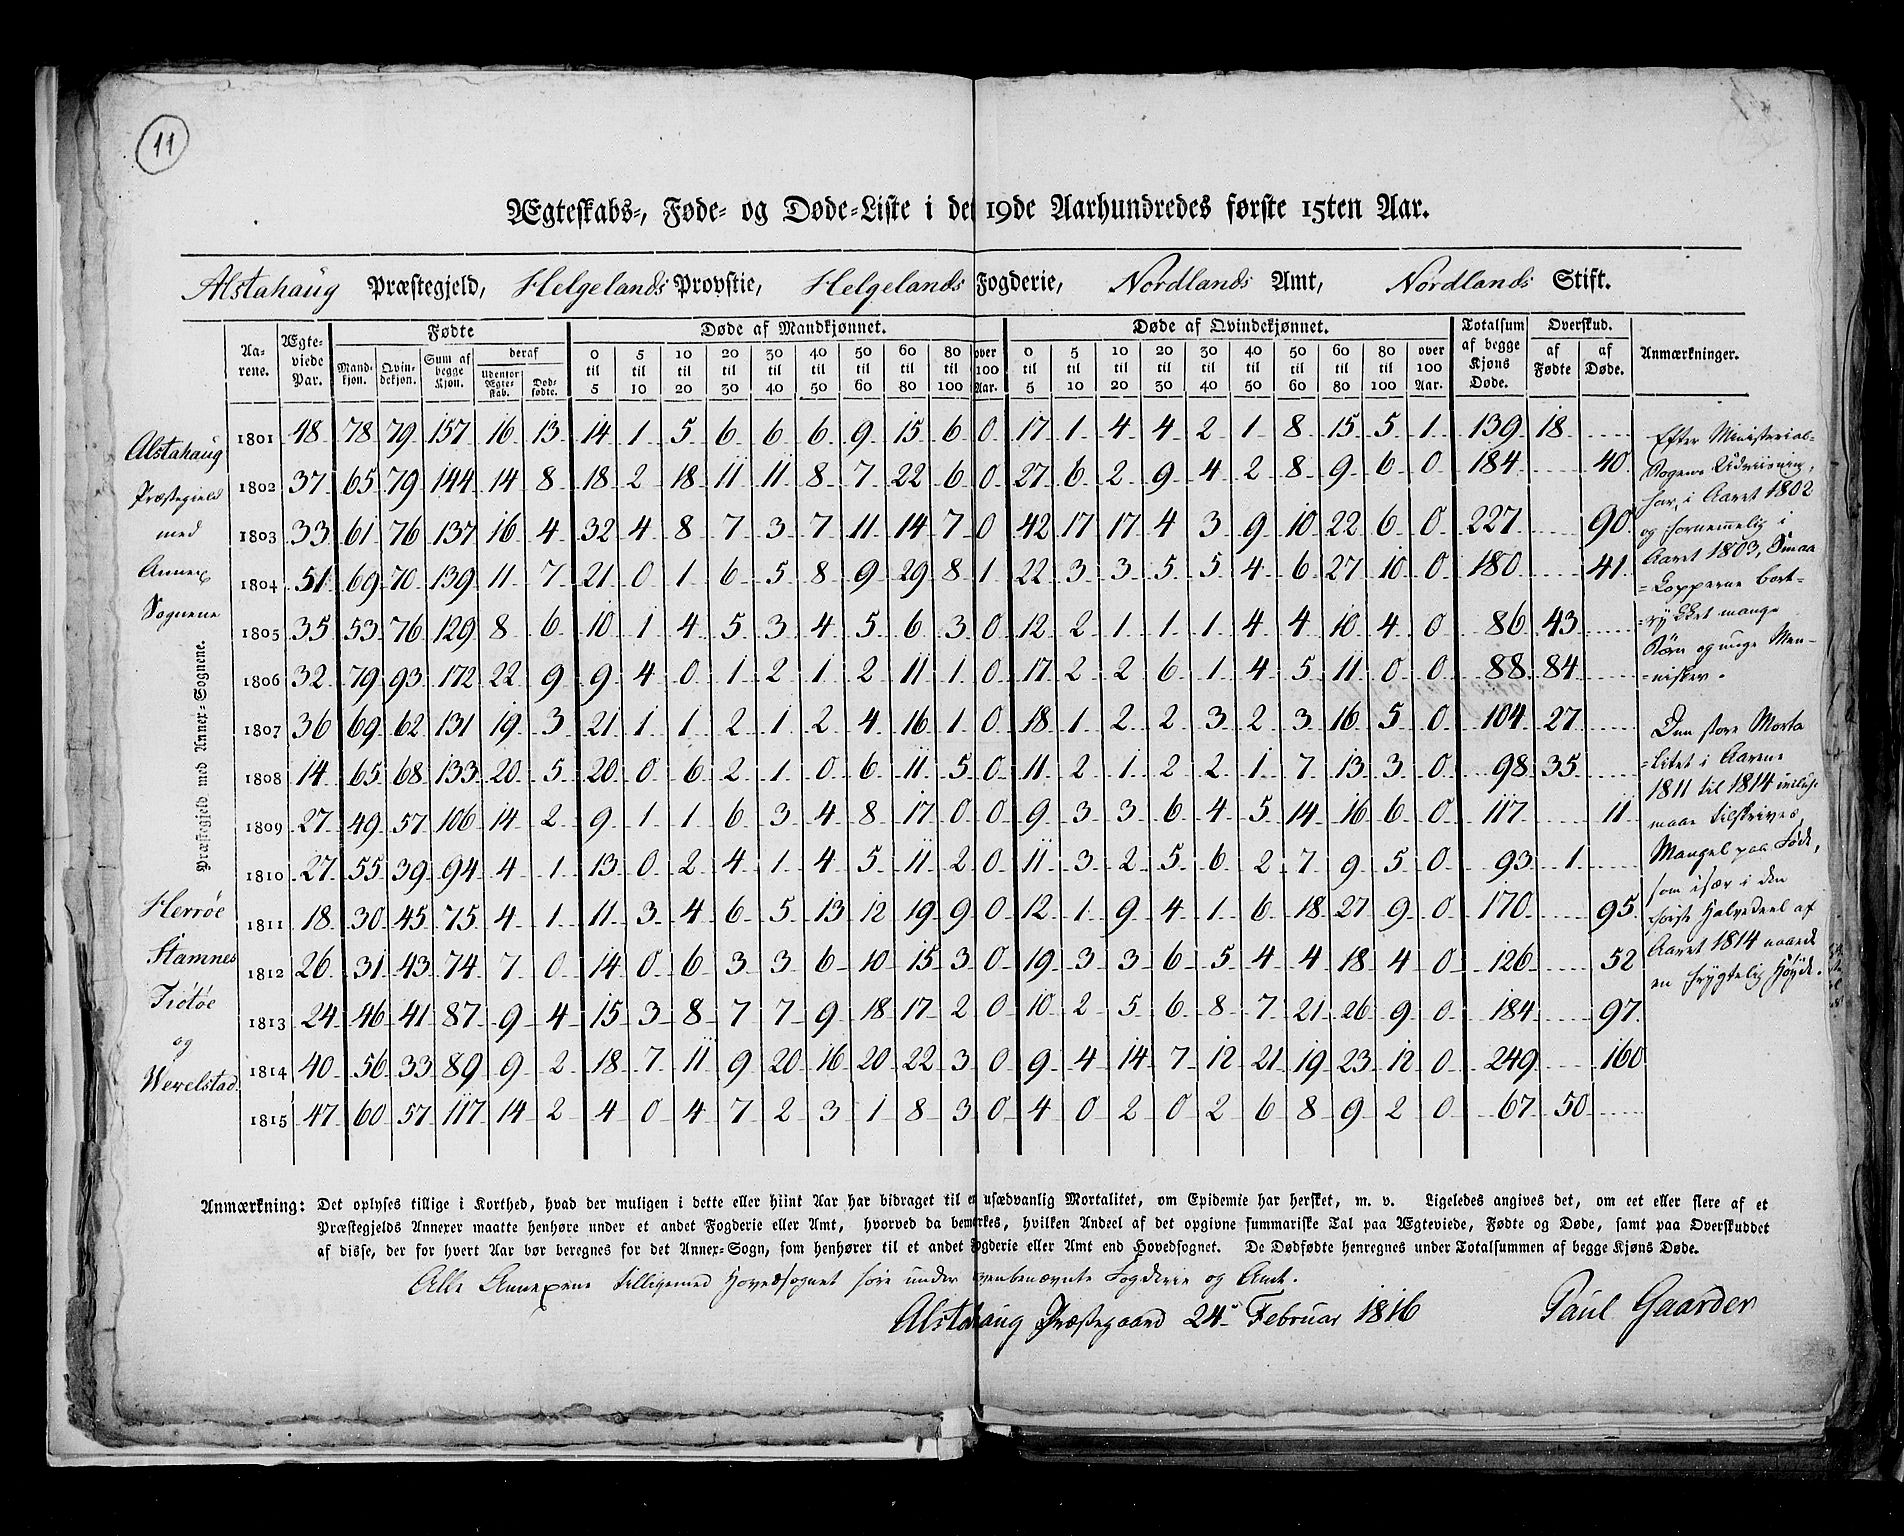 11
Ægteskabs-, Føde- og Døde-Liste i det 19de Aarhundredes første 15ten Aar.
Alstahaug Præstegjeld, Helgelands Provstie, Helgelands Fogderie, Nordlands Amt, Nordlands Stift.
Aarene. Ægteviede Par. Fødte Døde af Mandkjønnet. Døde af Qvindekjønnet. Totalsum af begge Kjøns Døde. Overskud. Anmærkninger.
Mandkjøn. Qvindekjøn. Sum af begge Kjøn. deraf Udenfor Ægteskab. Dødfødte. 0 til 5 5 til 10 10 til 20 20 til 30 30 til 40 40 til 50 50 til 60 60 til 80 80 til 100 over 100 Aar. 0 til 5 5 til 10 10 til 20 20 til 30 30 til 40 40 til 50 50 til 60 60 til 80 80 til 100 over 100 Aar. af Fødte af Døde.
1801 48 78 79 157 16 13 14 1 5 6 6 6 9 15 6 0 17 1 4 4 2 1 8 15 5 1 139 18
1802 37 65 79 144 14 8 18 2 18 11 11 8 7 22 6 0 27 6 2 9 4 2 8 9 6 0 184 40
1803 33 61 76 137 16 4 32 4 8 7 3 7 11 14 7 0 42 17 17 4 3 9 10 22 6 0 227 90
1804 51 69 70 139 11 7 21 0 1 6 5 8 9 29 8 1 22 3 3 5 5 4 6 27 10 0 180 41
1805 35 53 76 129 8 6 10 1 4 5 3 4 5 6 3 0 12 2 1 1 1 4 4 10 4 0 86 43
1806 32 79 93 172 22 9 9 4 0 1 2 1 2 11 1 0 17 2 2 6 1 4 5 11 0 0 88 84
1807 36 69 62 131 19 3 21 1 1 2 1 2 4 16 1 0 18 1 2 2 3 2 3 16 5 0 104 27
1808 14 65 68 133 20 5 20 0 6 2 1 0 6 11 5 0 11 2 1 2 2 1 7 13 3 0 98 35
1809 27 49 57 106 14 2 9 1 1 6 3 4 8 17 0 0 9 3 3 6 4 5 14 16 6 0 117 11
1810 27 55 39 94 4 1 13 0 2 4 1 4 5 11 2 0 11 3 2 5 6 2 7 9 5 0 93 1
1811 18 30 45 75 4 1 11 3 4 6 5 13 12 19 9 0 12 1 9 4 1 6 18 27 9 0 170 95
1812 26 31 43 74 7 0 14 0 6 3 3 6 10 15 3 0 19 3 3 6 5 4 4 18 4 0 126 52
1813 24 46 41 87 9 4 15 3 8 7 7 9 18 17 2 0 10 2 5 6 8 7 21 26 9 0 184 97
1814 40 56 33 89 9 2 18 7 11 9 20 16 20 22 3 0 9 4 14 7 12 21 19 23 12 0 249 160
1815 47 60 57 117 14 2 4 0 4 7 2 3 1 8 3 0 4 0 2 0 2 6 8 9 2 0 67 50
Alstahaug
Præstegield
med
Annex
Sognene
Præstegjeld med Annex-Sognene.
Herrøe
Stamnes
Tiotøe
og
Werelstad
Efter Ministerial-
Bogens Udviisning,
har, i Aaret 1802
og fornemmelig i
Aaret 1803, Smaa
=Kopperne bort-
=rykket mange
Børn og unge Men-
=nisker.
Den store Morta
=litet i Aarene
1811 til 1814 inclus:
maae tilskrives
Mangel paa Føde,
som især i den
første Halvedeel af
Aaret 1814 naaede
en frygtelig Høyde.
Anmærkning: Det oplyses tillige i Korthed, hvad der muligen i dette eller hiint Aar har bidraget til en usædvanlig Mortalitet, om Epidemie har hersket, m. v. Ligeledes angives det, om eet eller flere af et
Præstegjelds Annexer maatte henhøre under et andet Fogderie eller Amt, hvorved da bemærkes, hvilken Andeel af det opgivne summariske Tal paa Ægteviede, Fødte og Døde, samt paa Overskuddet
af disse, der for hvert Aar bør beregnes for det Annex-Sogn, som henhører til et andet Fogderie eller Amt end Hovedsognet. De Dødfødte henregnes under Totalsummen af begge Kjøns Døde.
Alle Annexene tilligemed Hovedsognet høre under ovenbenævnte Fogderie og Amt.
Alstahaug Præstegaard 24de Februar 1816 Paul Gaarder